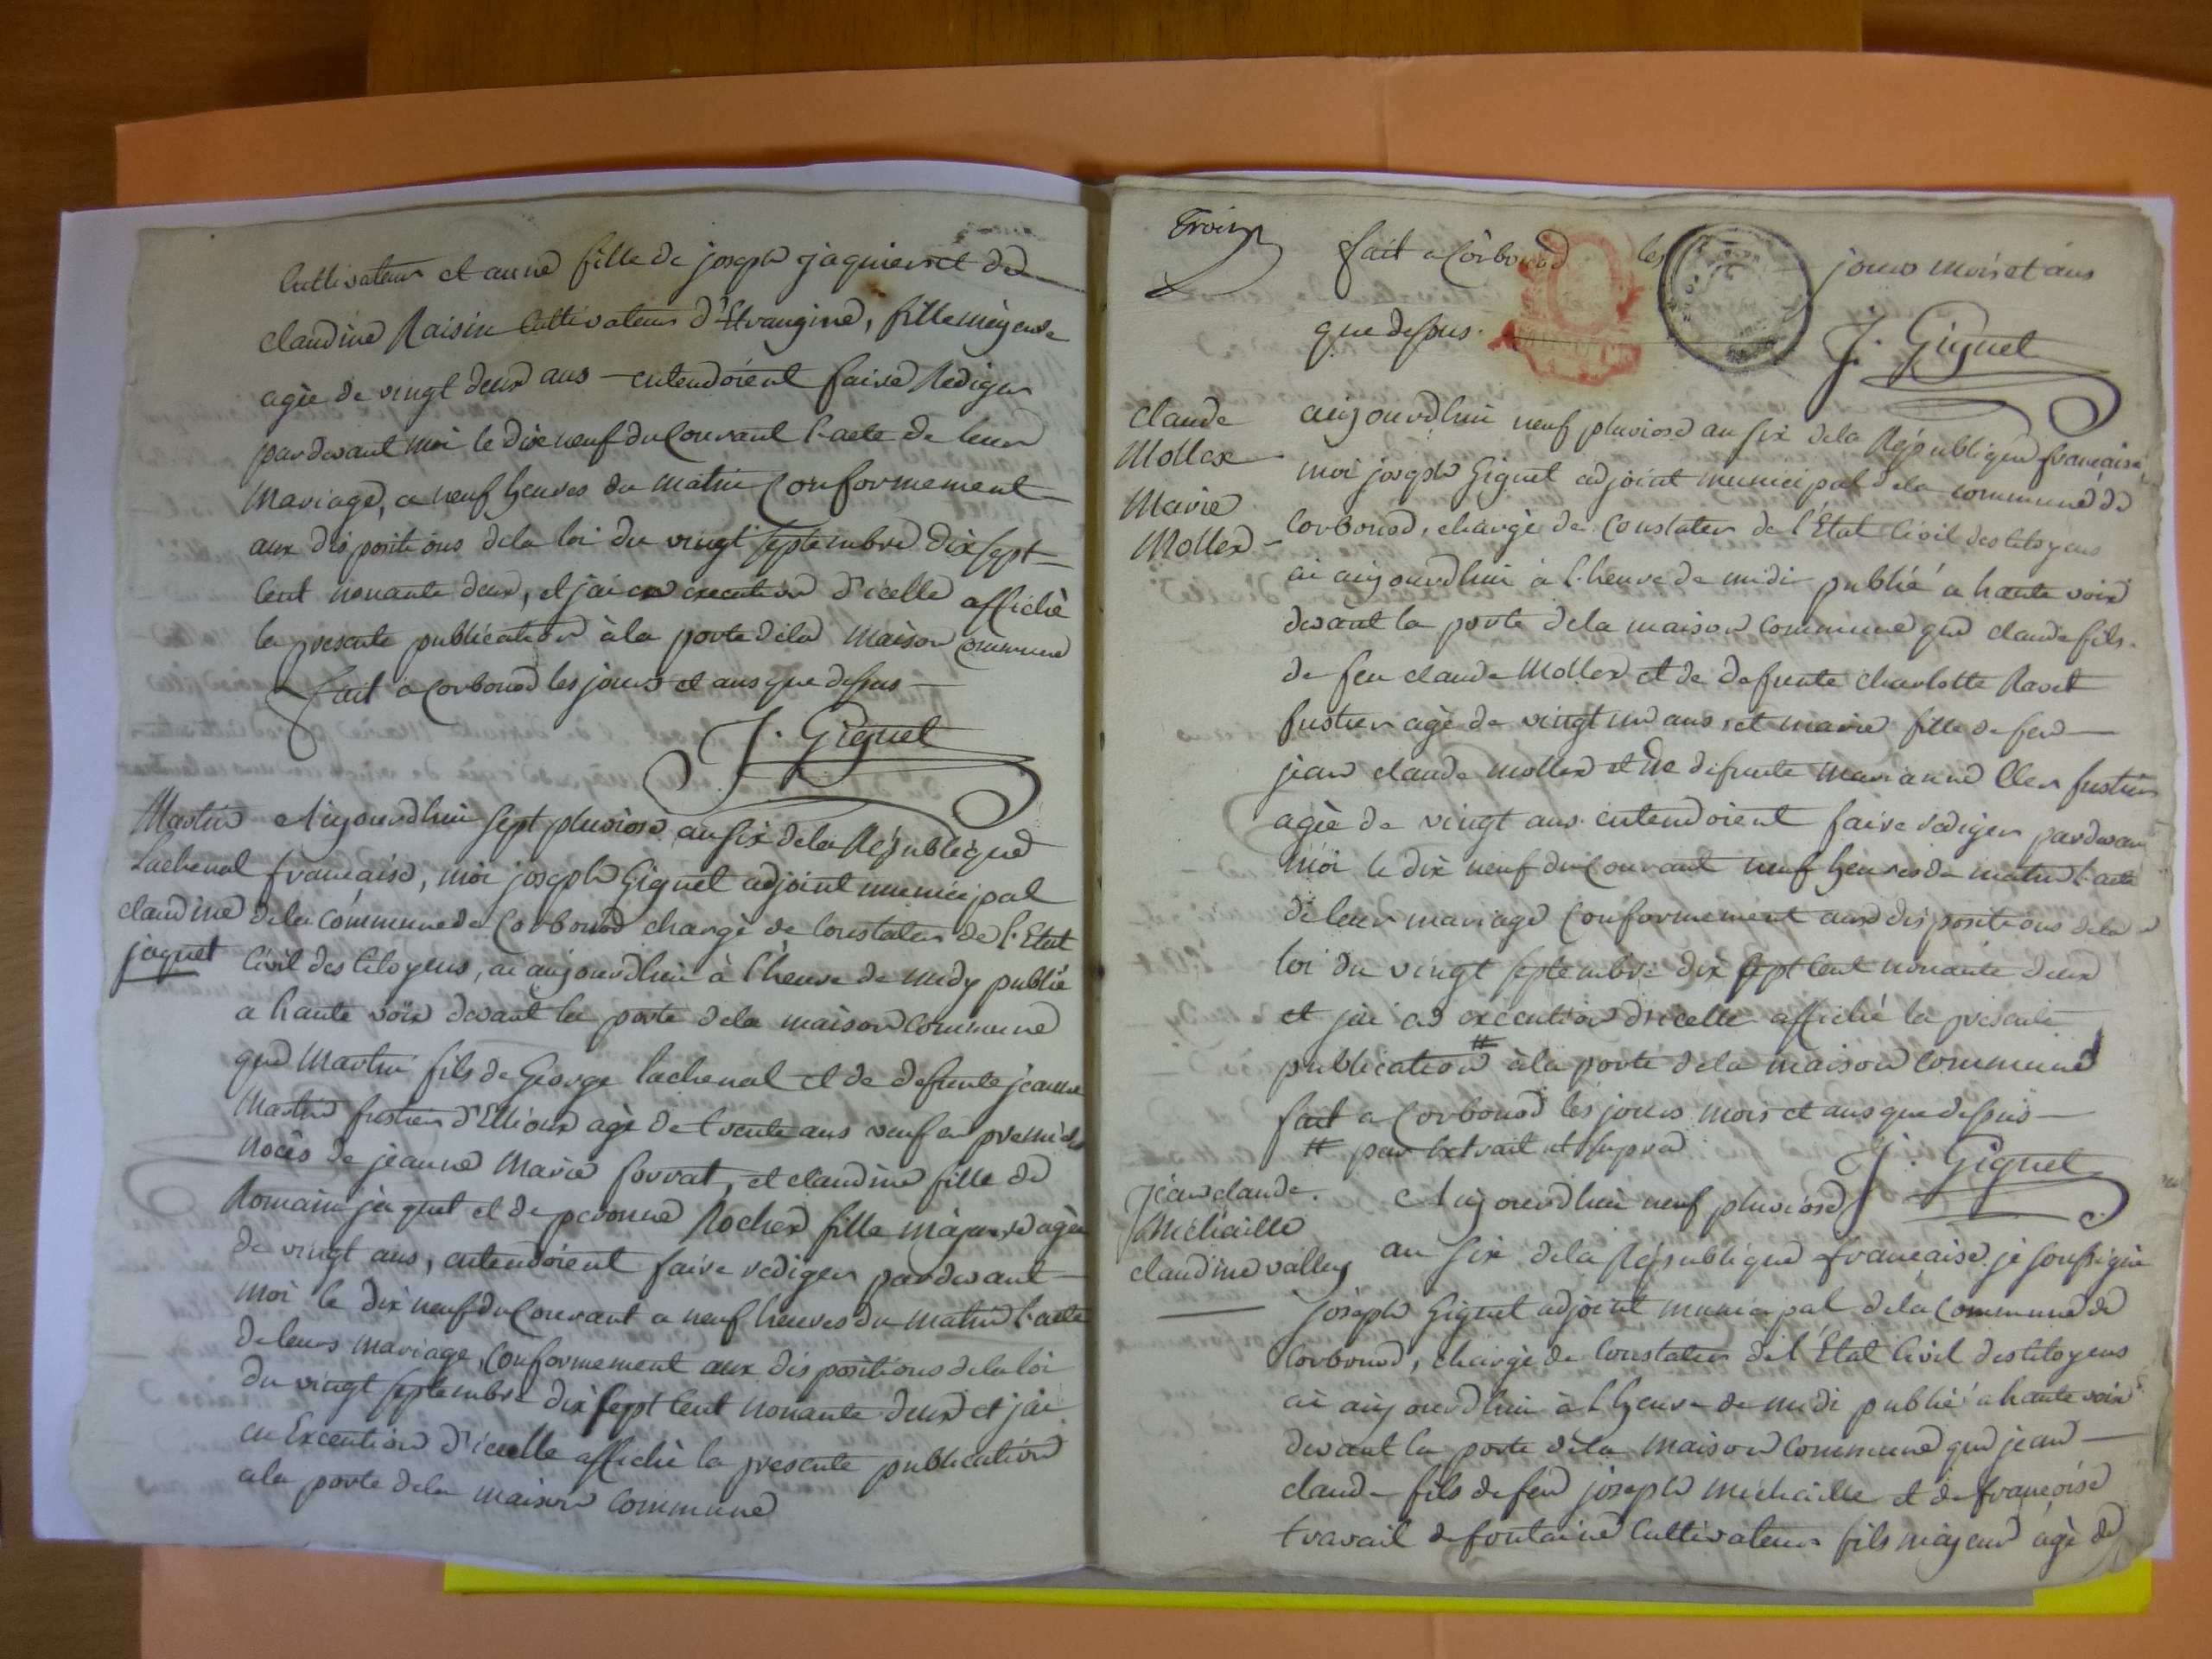 Cultivateur et anne fille de joseph jaquier et de
claudine Raisin Cultivateur d'Etrangine, fille mageure
agée de vingt deux ans - entendoient faire Rediger
pardevant moi le dix neuf du Courant l'acte de leur
Mariage, a neuf heures du matin Conformement
aux dispositions dela loi du vingt septembre dix sept
Cent nonante deux, et jai en execution d'icelle affiché
la presente publication à la porte dela maison Commune
fait a Corbonod les jours et ans que dessus
J. Giguet
Martin
Lachenal
claudine
jaquet
Aujourdhui sept pluviose an six dela République
francaise, moi joseph Giguet adjoint municipal
dela Commune de Corbonod chargé de Constater de l'Etat
Civil des Citoyens, ai aujourdhui à l'heure de midy publié
a haute voix devant la porte dela maison Commune
que Martin fils de George lachenal et de defunte jeanne
Martin fustier d'Ellioux agé de trente ans veuf en premieres
noces de jeanne Marie forrat, et claudine fille de
Romain jaquet et de peronne Rocher fille majeure agée
de vingt ans, entendoient faire rediger pardevant
moi le dix neuf du Courant a neuf heures du matin l'acte
de leurs mariage, Conformement aux dispositions dela loi
du vingt septembre dix sept Cent nonante deux et jai
en Execution d'icelle affiché la presente publication
ala porte dela maison Commune
Trois
fait a Corbonod les jours mois et ans
que dessus.
J. Giguet
claude
Mollex
Marie
Mollex
aujourdhui neuf pluviose an six dela République francaise,
moi joseph Giguet adjoint municipal dela commune de
Corbonod, chargé de Constater de l'Etat Civil des Citoyens
ai aujourdhui à l'heure de midi publié a haute voix
devant la porte dela maison Commune que claude fils
de feu claude Mollex et de defunte charlotte Ravet
fustier agé de vingt un ans, et marie fille de feu
jean claude mollex et de defunte marianne Cler fustier
agée de vingt ans entendoient faire rediger pardevant
moi le dix neuf du Courant neuf heures du matin l'acte
de leur mariage Conformement aux dispositions dela
loi du vingt septembre dix sept Cent nonante deux
et jai en execution d'icelle affiché la presente
publication # à la porte dela maison Commune
fait a Corbonod les jours mois et ans que dessus
# par Extrait et supra
J. Giguet
Jean claude
Michaille
claudine vallet
Aujourdhui neuf pluviose
an six dela République francaise je soussigné
joseph Giguet adjoint municipal dela Commune de
Corbonod, chargé de Constater del'Etat Civil des Citoyens
ai aujourdhui à l'heure de midi publié a haute voix
devant la porte dela maison Commune que jean
claude fils de feu joseph michaille et de francoise
travail de fontaine Cultivateur fils majeur agé de